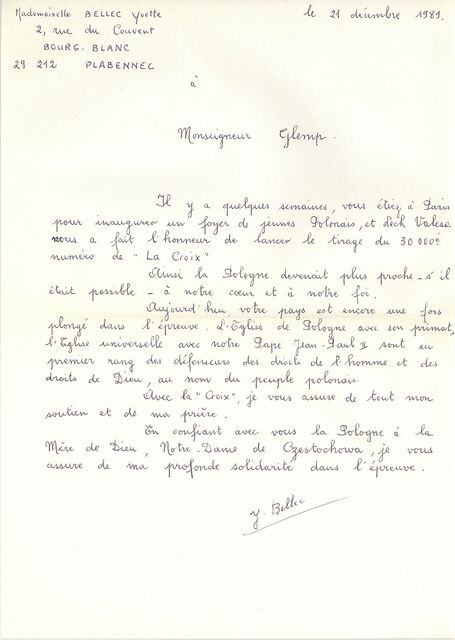 Mademoiselle BELLEC Yvette
le 21 décembre 1981.
2, rue du Couvent
BOURG-BLANC
29 212 PLABENNEC
à
Monseigneur Glemp.
Il y a quelques semaines, vous étiez à Paris
pour inaugurer un foyer de jeunes Polonais, et Lech Valesa
nous a fait l'honneur de lancer le tirage du 30 000e
numéro de "La Croix"
Ainsi la Pologne devenait plus proche - s'il
était possible - à notre cœur et à notre foi.
Aujourd'hui votre pays est encore une fois
plongé dans l'épreuve. L'Eglise de Pologne avec son primat,
l'Eglise universelle avec notre Pape Jean-Paul II sont au
premier rang des défenseurs des droits de l'homme et des
droits de Dieu, au nom du peuple polonais.
Avec la "Croix", je vous assure de tout mon
soutien et de ma prière.
En confiant avec vous la Pologne à la
Mère de Dieu, Notre-Dame de Czestochowa, je vous
assure de ma profonde solidarité dans l'épreuve.
Y. Bellec